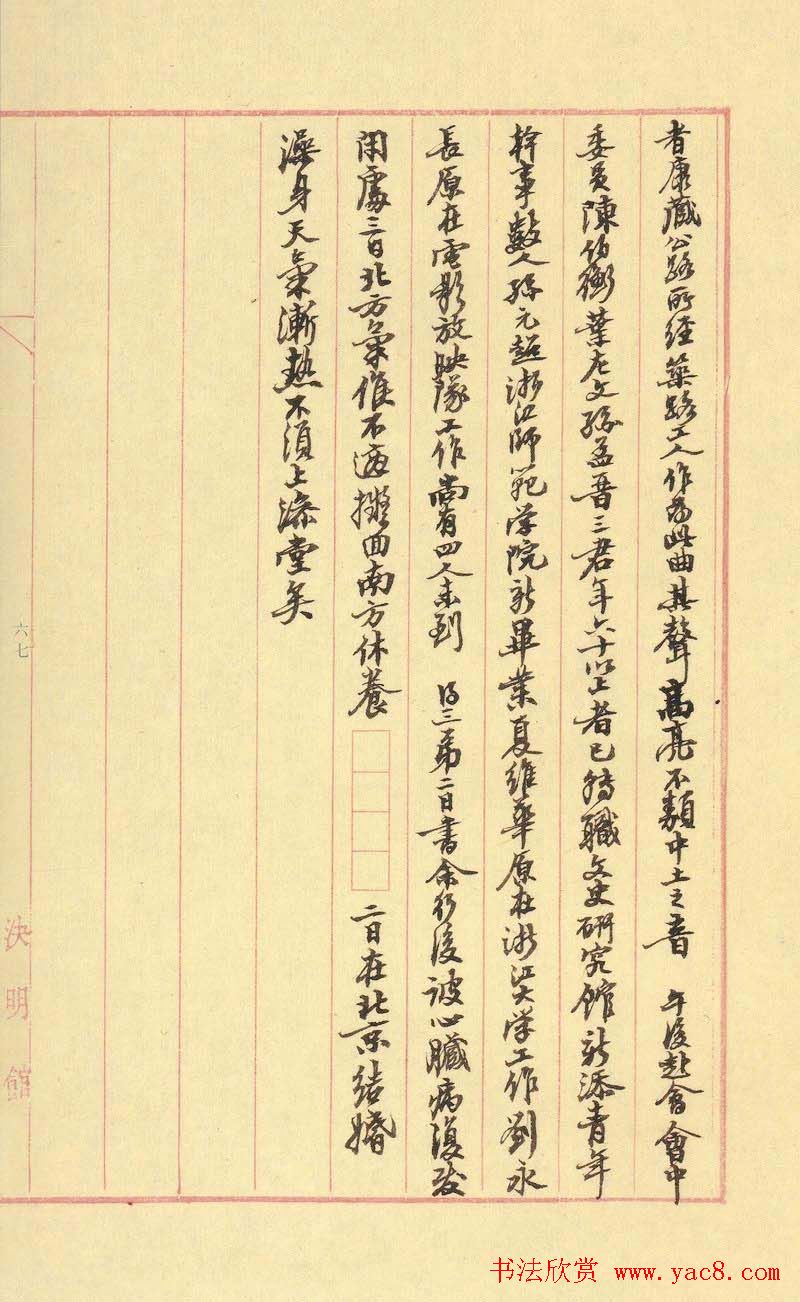 者康藏公路所經築路工人作為此曲其聲高亮不類中土之音　午後赴會會中
委員陳伯衡葉左文孫孟晉三君年六十以上者已轉職文史研究館新添青年
幹事數人孫元超浙江師範学院新畢業夏維華原在浙江大学工作劉永
長原在電影放映隊工作尚有四人未到　得三弟二日書余行後彼心臟病復发
閑處三日北方氣候不適擬回南方休養□□□□二日在北京結婚
澡身天氣漸熱不須上浴堂矣
六七
決明館
书法欣赏 www.yac8.com